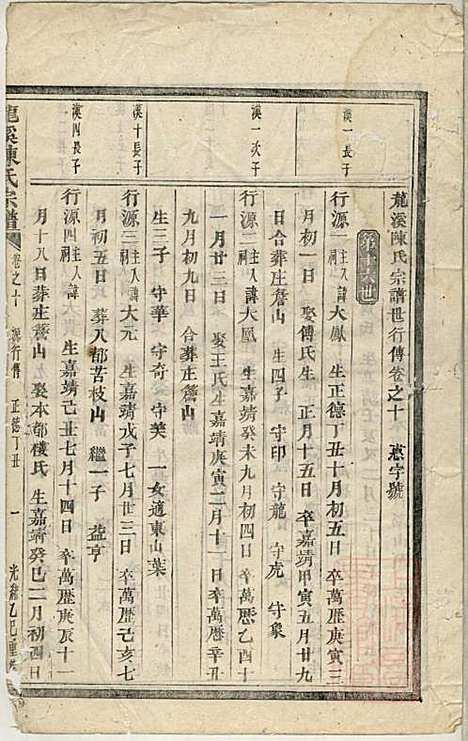 龍溪陳氏宗譜世行傳卷之十 慈字號
溪一長子
行源一 主入祠 諱大鳳 生正德丁丑十月初五日 卒萬歷庚寅三
月初一日 娶傅氏生 正月十五日 卒嘉靖甲寅五月廿九
日合葬庄詹山 生四子 守印 守龍 守虎 守象
溪一次子
行源二 主入祠 諱大凰 生嘉靖癸未九月初四日 卒萬歷乙酉十
一月廿三日 娶王氏生嘉靖庚寅二月十一日 卒萬歷辛丑
九月初九日 合葬庄詹山
生三子 守華 守奇 守美 一女適東山葉
溪十長子
行源三 主入祠 諱大元 生嘉靖戊子七月廿三日 卒萬歷己亥七
月初五日 葬八都苦枝山 繼一子 益亨
溪四長子
行源四 主入祠 諱 生嘉靖己丑七月十四日 卒萬歷庚辰十一
月十八日葬庄詹山 娶本都樓氏 生嘉靖癸巳二月初四日
龍溪陳氏宗譜 卷之十 行傳 正德丁丑 一 光緒乙巳重